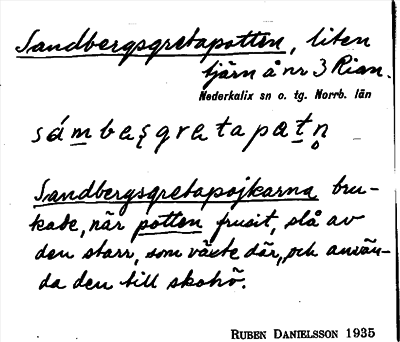 Sandbergsgretapotten, liten
tjärn å nr 3 Rian.
Nederkalix sn o. tg. Norrb. län
Sandbergsgretapojkarna bru-
kade, när potten frusit, slå av
den starr, som växte där, och använ-
da den till skohö.
RUBEN DANIELSSON 1935